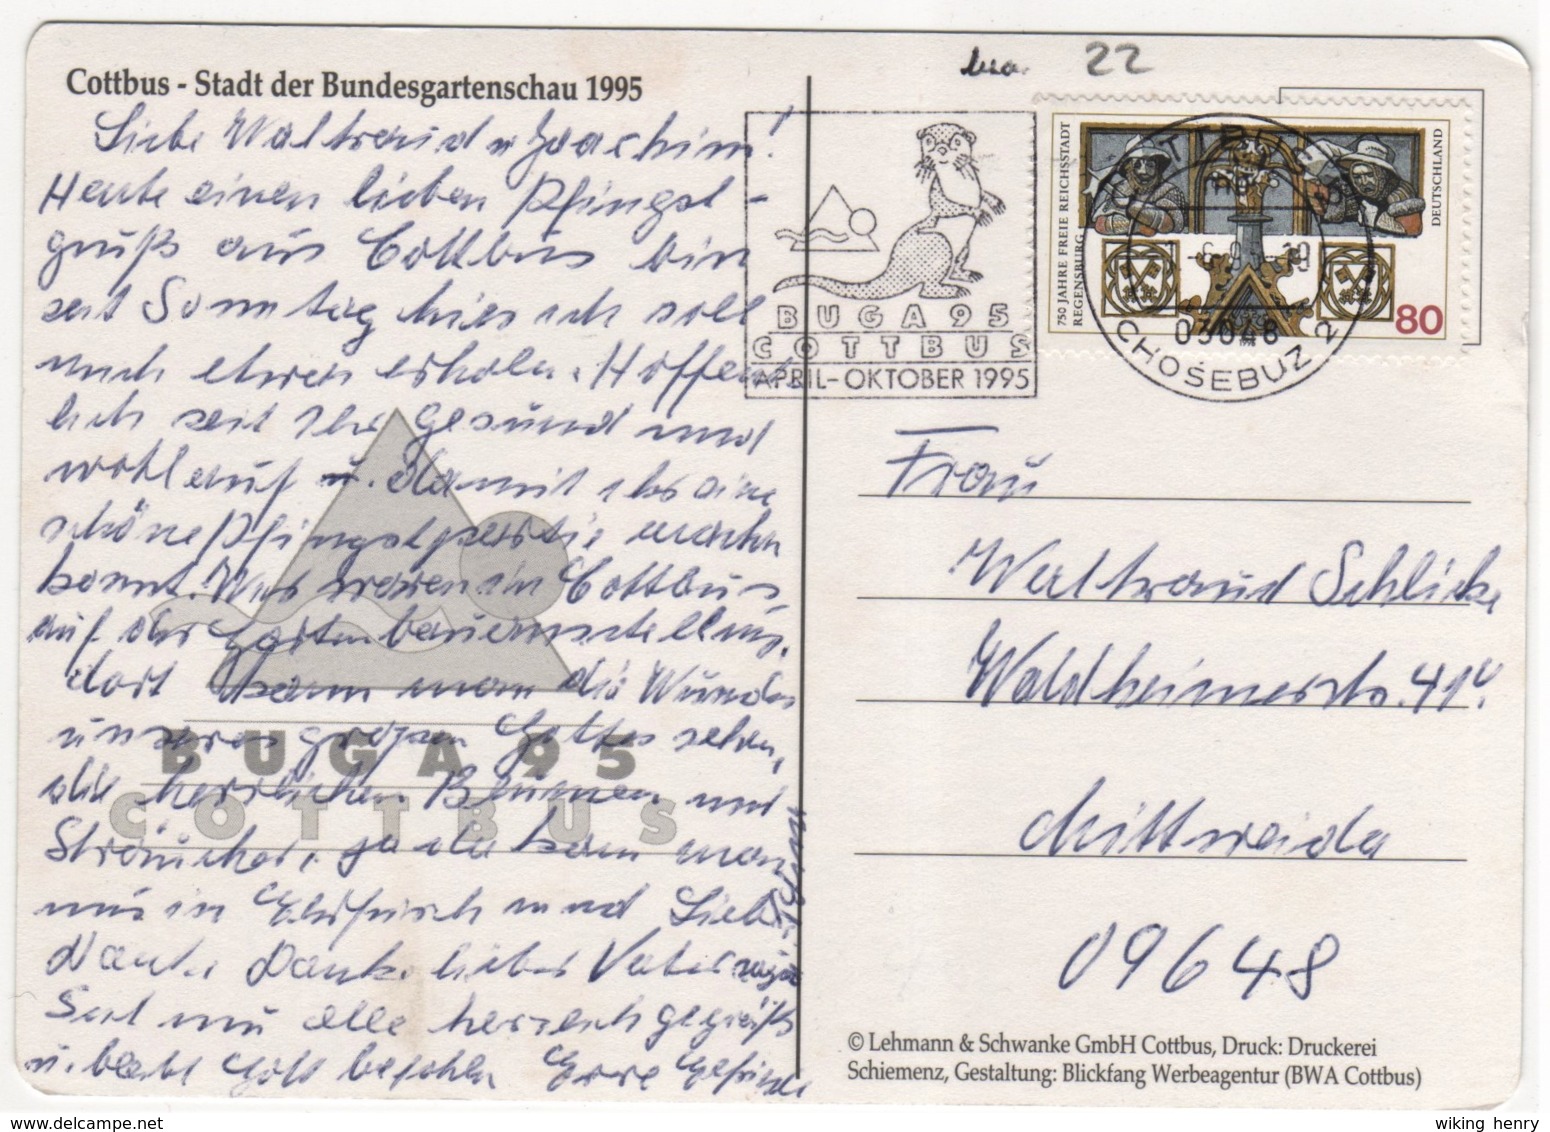 Cottbus - Stadt der Bundesgartenschau 1995
Liebe Waltraud u Joachim!
Heute einen lieben Pfingst-
gruß aus Cottbus bin
seit Sonntag hier ich soll
mich etwas erholen. Hoffent
lich seit Ihr gesund und
wohlauf u. damit Ihr eine
schöne Pfingst machn
konnt. Wir waren in Cottbus
auf der Gartenbauausstellung,
dort kann man die Wunder
unseres großen Gottes sehen,
die herrlichen Blumen und
Sträucher, ja da kann man
nur in Ehrfurch und Liebe
Danke Danke lieber Vater sagen
Seit nu alle herzlich gegrüßt
u. bleibt Gott befohlen Eure
BUGA 95
COTTBUS
22
BUGA 95
COTTBUS
APRIL-OKTOBER 1995
COTTBUS
03048
CHOŚEBUZ 2
750 JAHRE FREIE REICHSSTADT
REGENSBURG
DEUTSCHLAND
80
Frau
Waltraud Schlicke
Waldheimerstr. 41
Mittweida
09648
© Lehmann & Schwanke GmbH Cottbus, Druck: Druckerei
Schiemenz, Gestaltung: Blickfang Werbeagentur (BWA Cottbus)
wiking henry